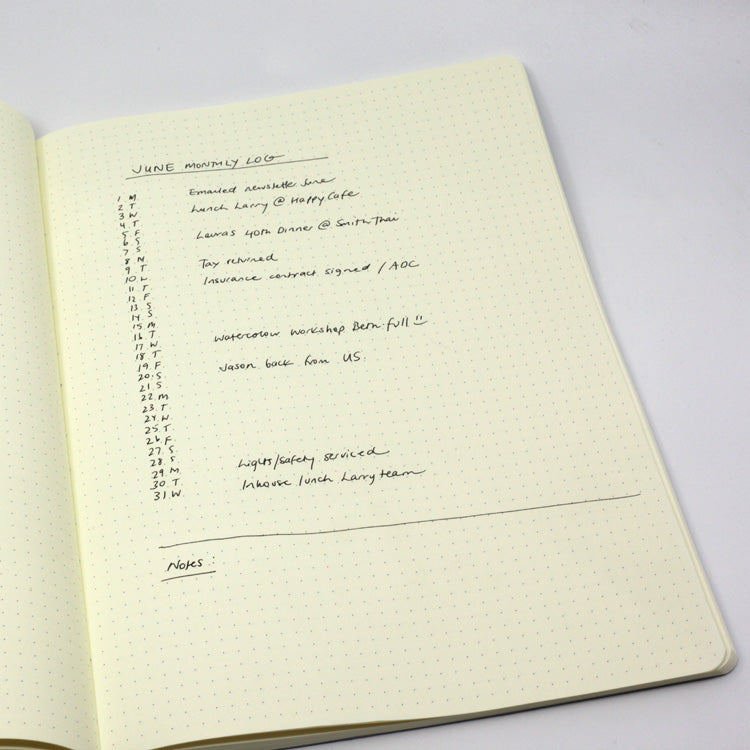 JUNE MONTHLY LOG
1 M Emailed newsletter June
2 T
3 W Lunch Larry @ Happy Cafe
4 T
5 F
6 S Lauras 40th Dinner @ Smith Thai
7 S
8 M
9 T Tax returned
10. W
11. T Insurance contract signed / AOC
12. F
13. S
14. S.
15 M
16 T
17 W. Watercolour Workshop Bern. full
18 T
19. F
20. S Jason back from US.
21. S
22. M
23. T
24. W
25. T
26. F
27. S
28. S.
29. M Lights/safety serviced
30 T
31 W. Inhouse lunch Larry team
Notes: